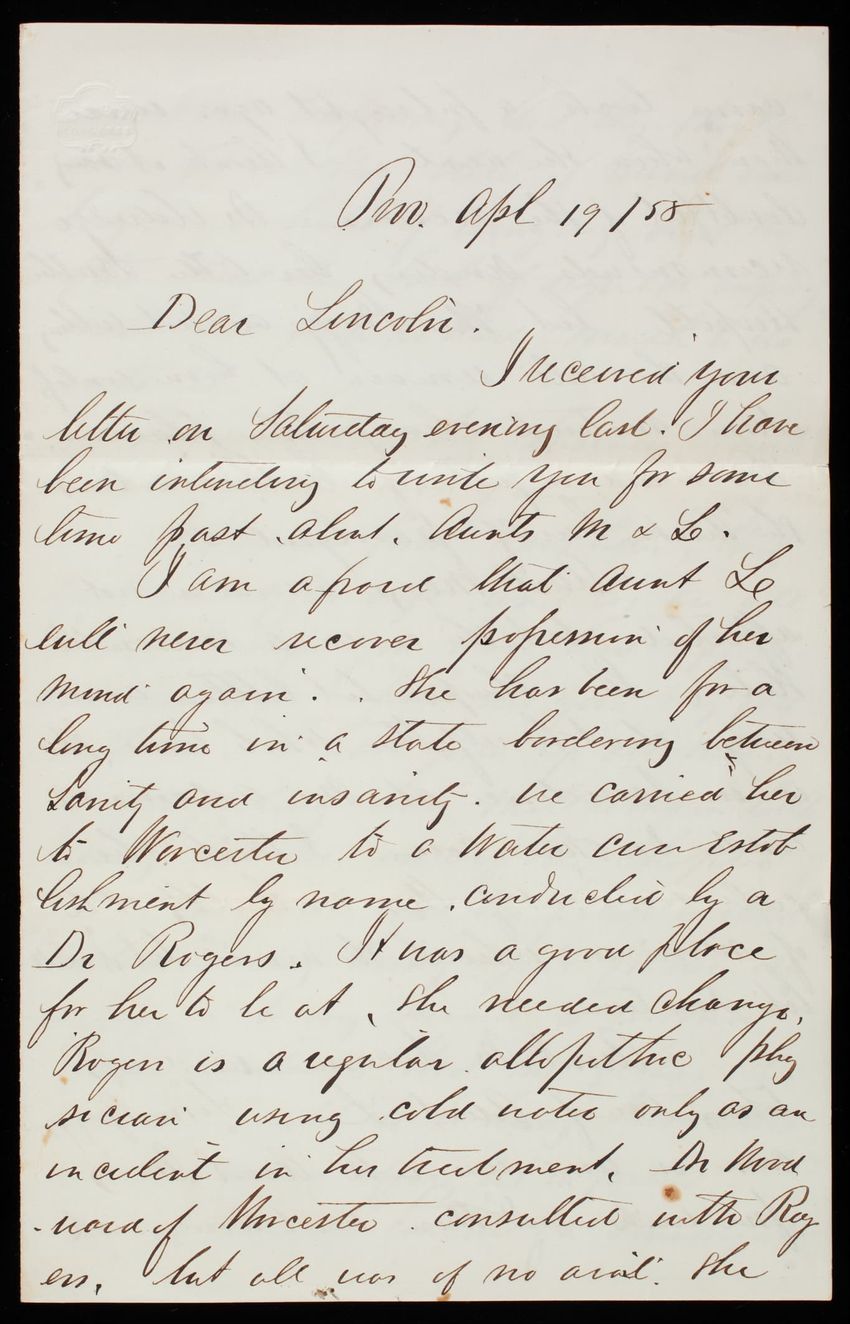 Prov. Apl 19/58
Dear Lincoln.
I received your
letter on Saturday evening last. I have
been intending to write you for some
time past about Aunts M & L.
I am afraid that Aunt L
will never recover possession of her
mind again. She has been for a
long time in a state bordering between
Sanity and insanity. We carried her
to Worcester to a Water cure Estab
lishment by name conducted by a
Dr Rogers. It was a good place
for her to be at, She needed change,
Rogers is a regular allopathic phy
sician using cold water only as an
incident in his treatment. Dr Wood
-ward of Worcester consulted with Rog
ers, but all was of no avail. She